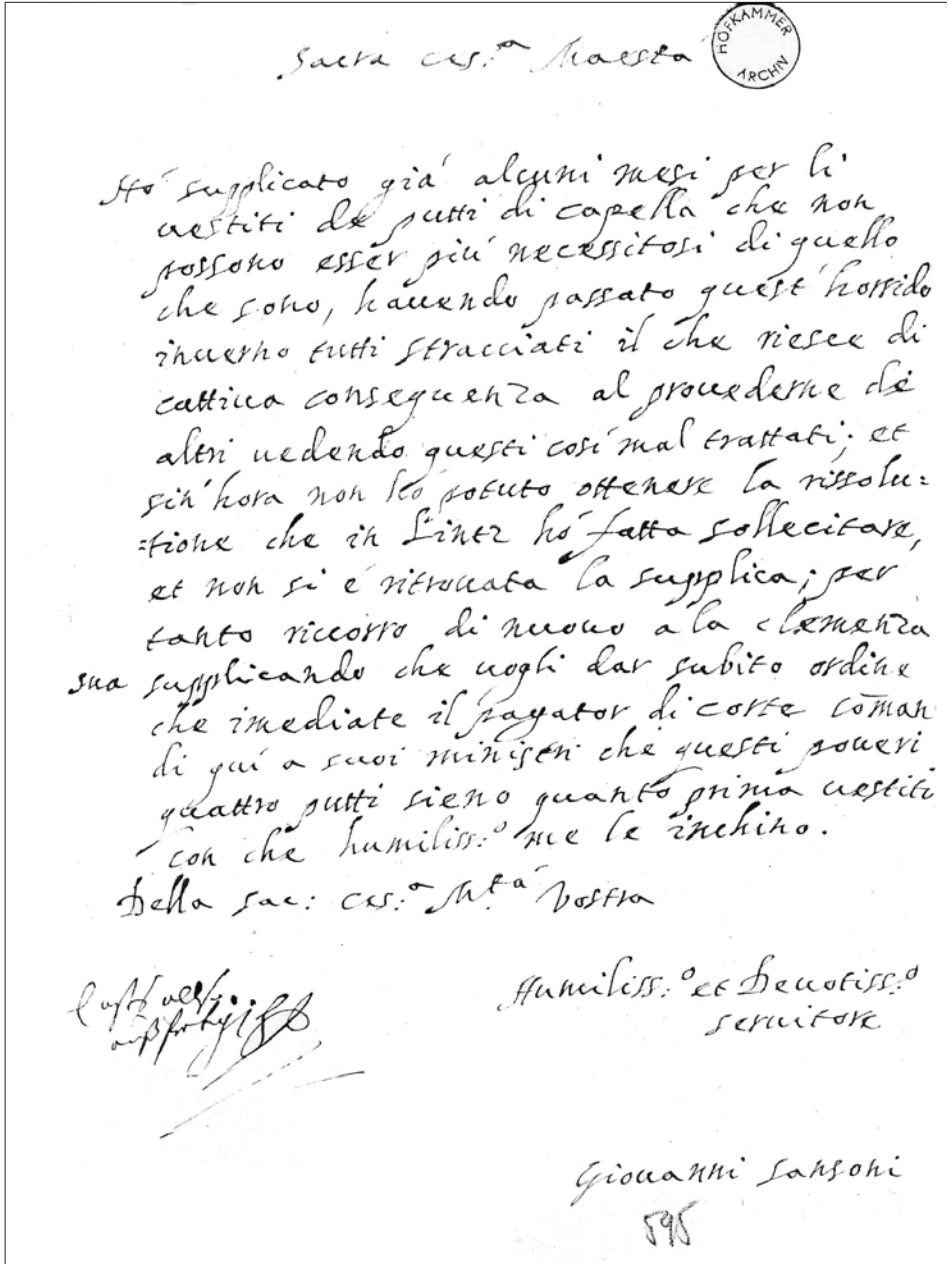 Sacra Ces:ª Maesta
HOFKAMMER ARCHIV
Hó supplicato giá alcuni mesi per li
uestiti de putti di capella che non
possono esser piú necessitosi di quello
che sono, hauendo passato quest'horrido
inuerno tutti stracciati il che riesce di
cattiua conseguenza al prouederne de
altri uedendo questi cosí mal trattati; et
sin'hora non hó potuto ottenere la rissolu:
:tione che in Lintz hó fatta sollecitare,
et non si é ritrouata la supplica; per
tanto riccorro di nuouo a la clemenza
sua supplicando che uogli dar subito ordine
che imediate il pagator di corte com̄an
di quí a suoi ministri che questi poueri
quattro putti sieno quanto prima uestiti
con che humiliss:º me le inchino.
Della Sac: Ces:ª M.tá Vostra
Humiliss:º et Deuotiss:º
seruitore
Giouanni Sansoni
595